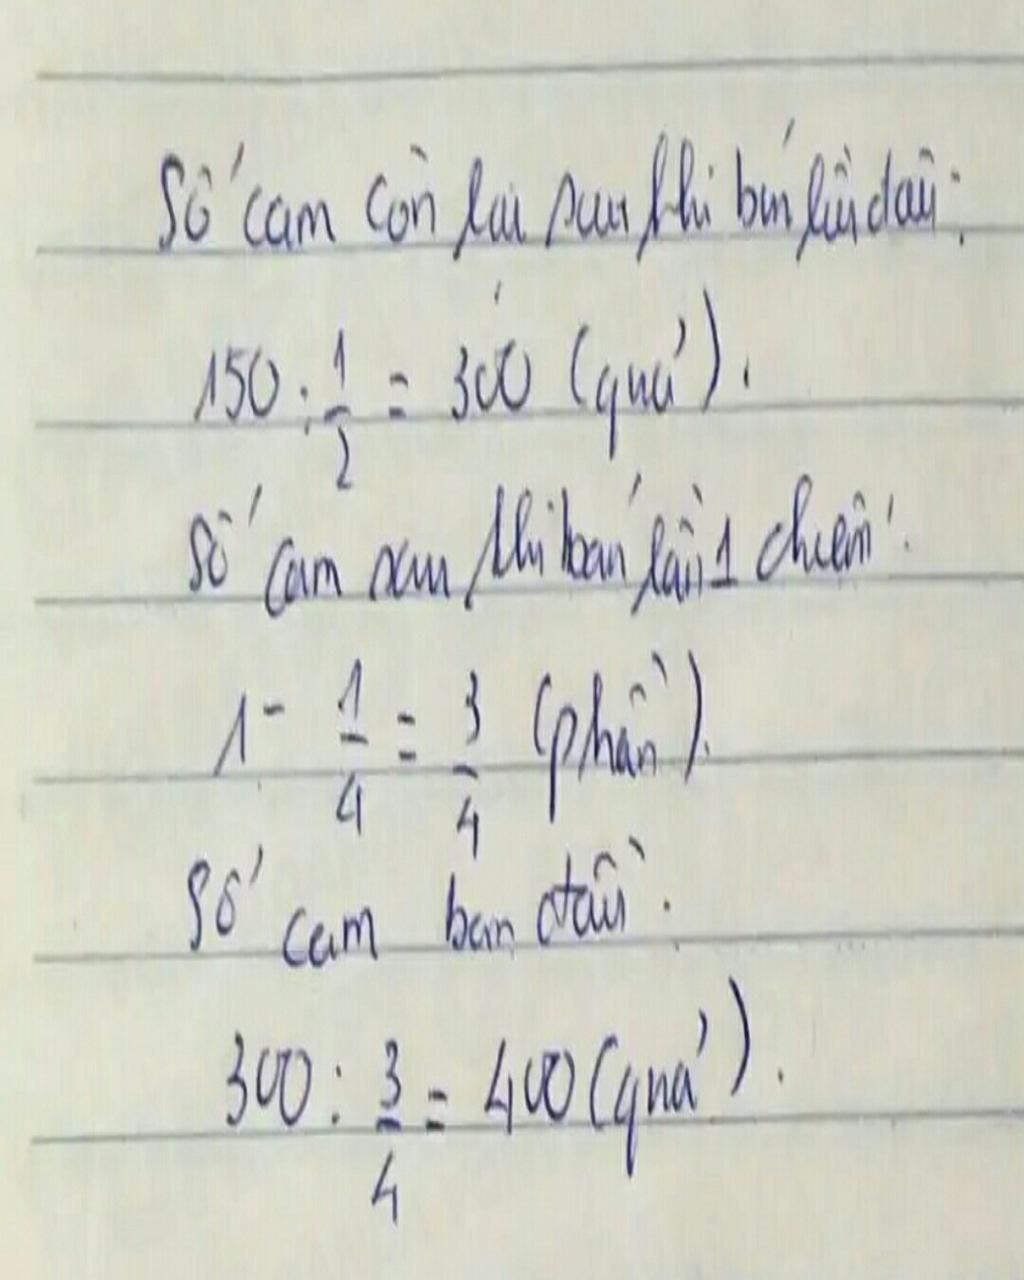 Số cam còn lại sau khi bán lần đầu:
150 : 1/2 = 300 (quả).
Số cam sau khi bán lần 1 chiếm:
1 - 1/4 = 3/4 (phần).
Số cam ban đầu:
300 : 3/4 = 400 (quả).